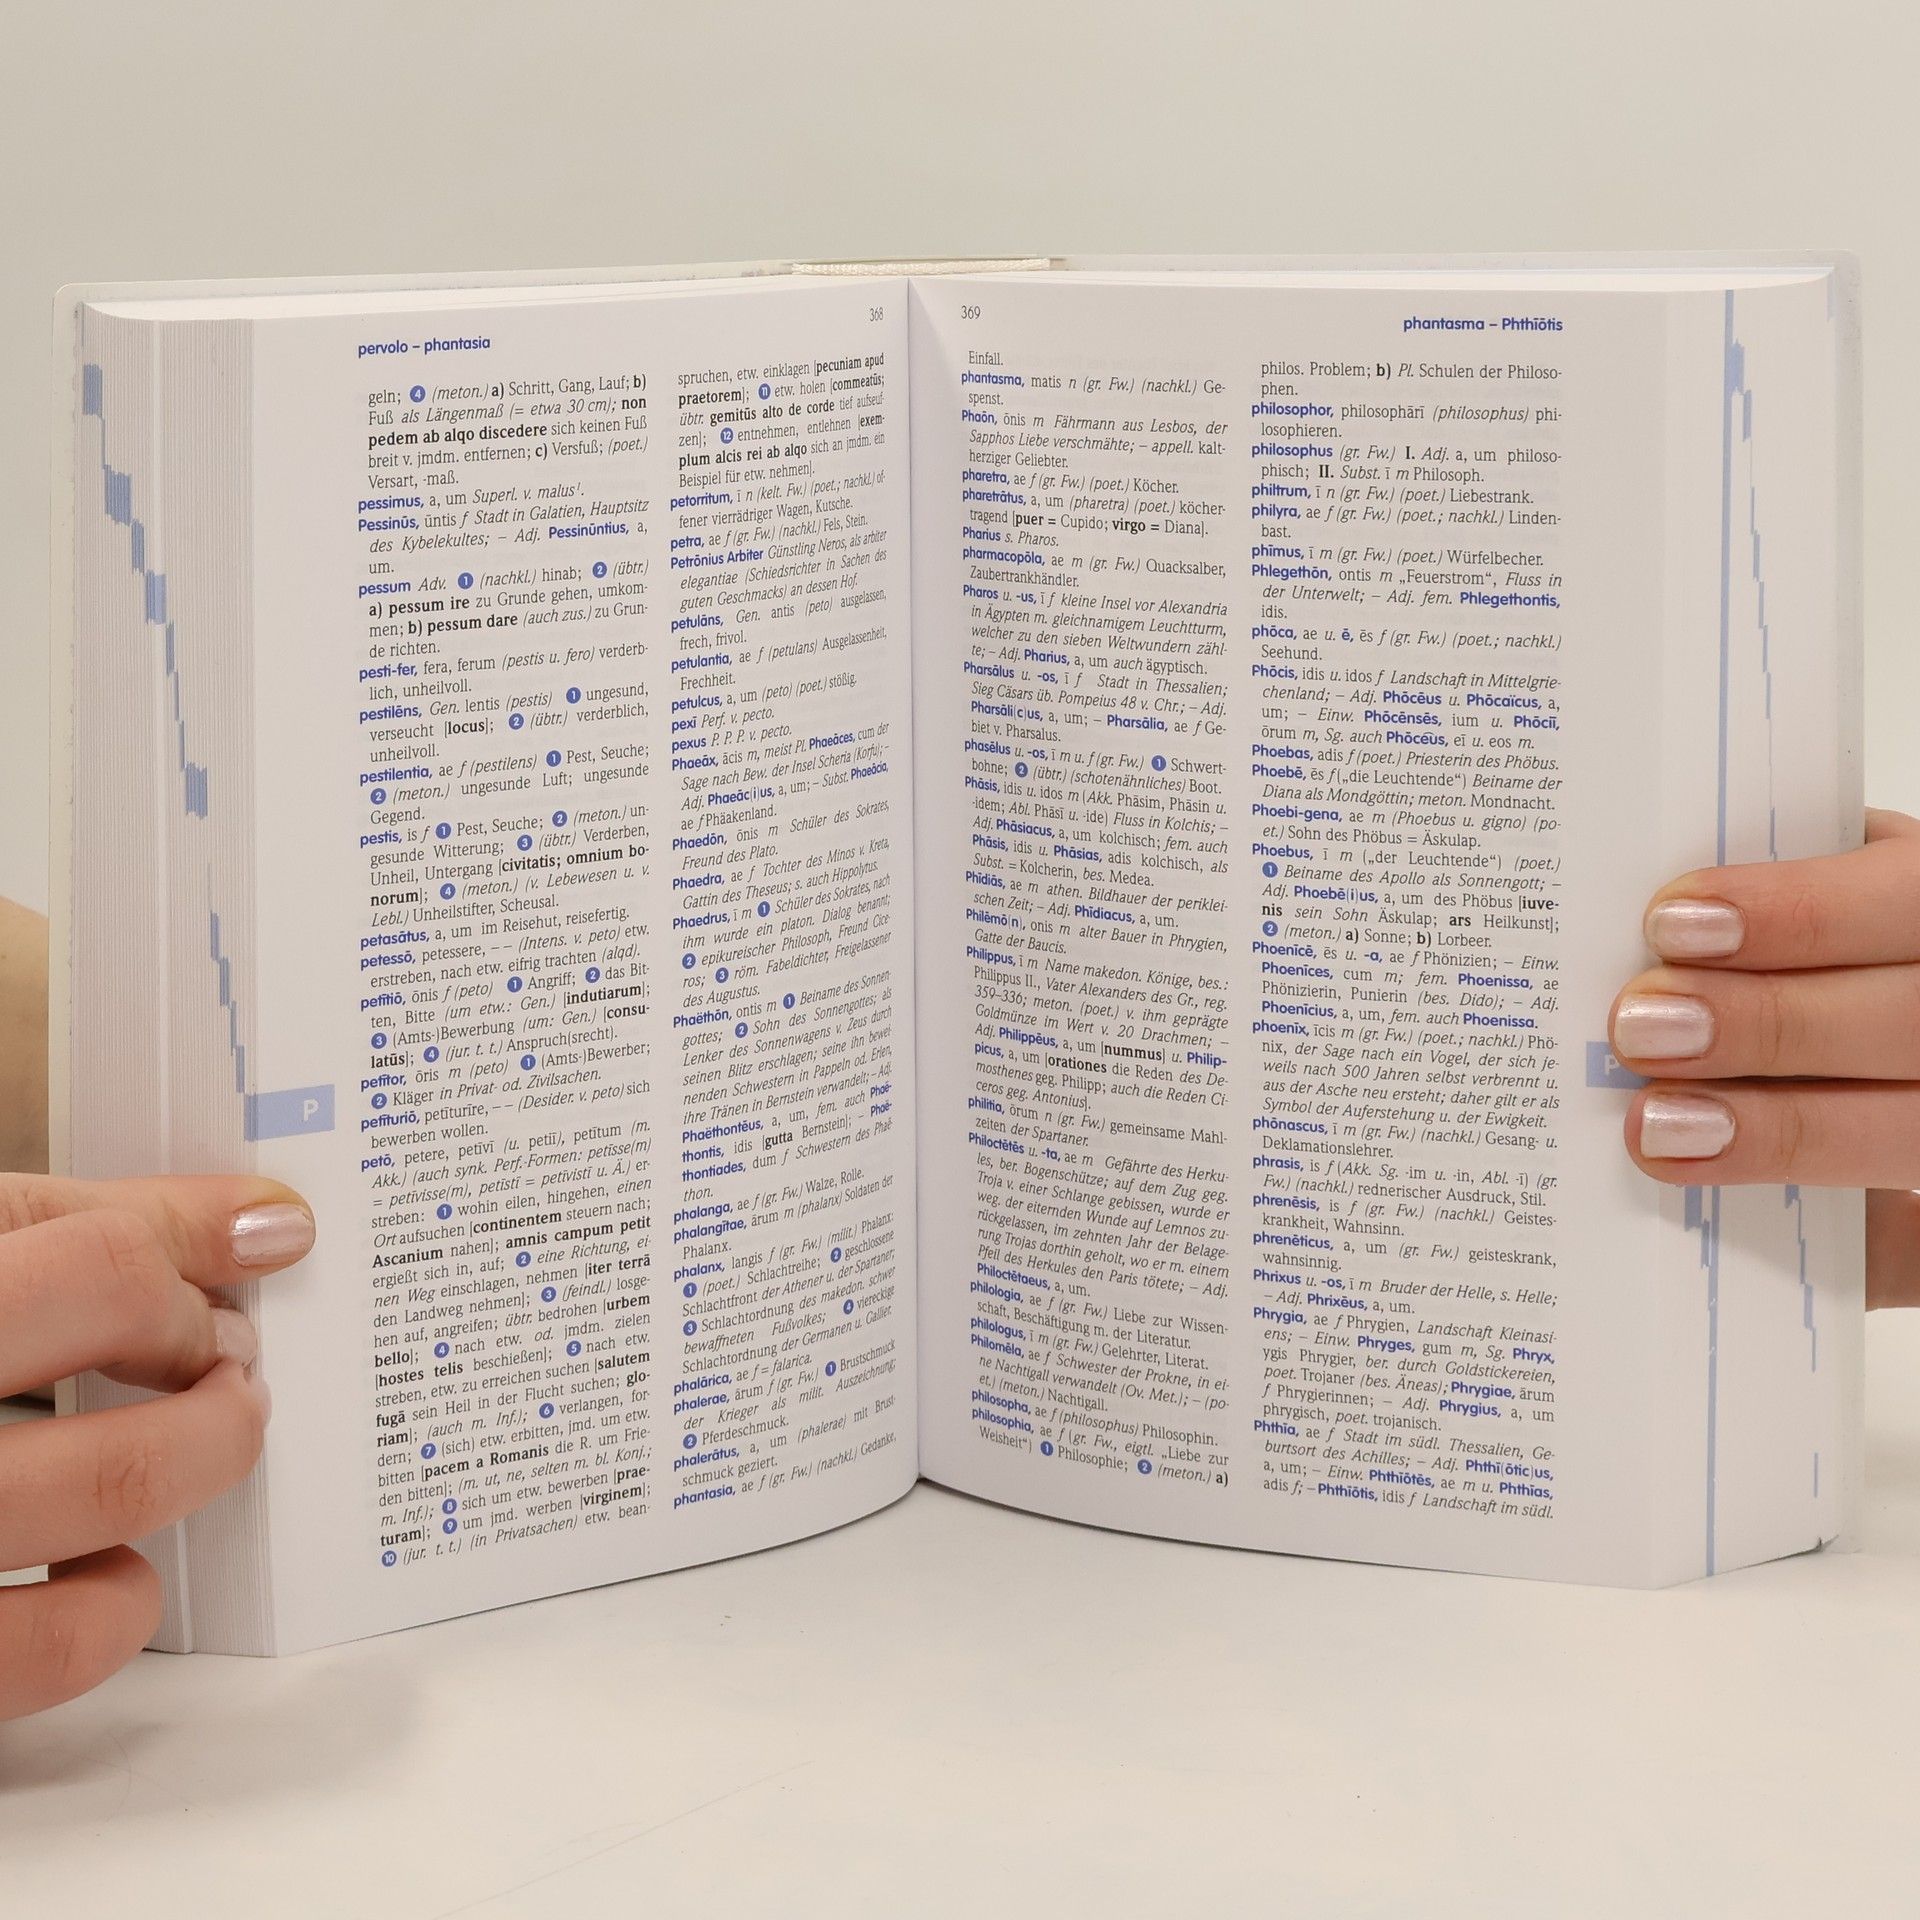 368
pervolo – phantasia
geln; 4 (meton.) a) Schritt, Gang, Lauf; b)
Fuß als Längenmaß (= etwa 30 cm); non
pedem ab alqo discedere sich keinen Fuß
breit v. jmdm. entfernen; c) Versfuß; (poet.)
Versart, -maß.
pessimus, a, um Superl. v. malus¹.
Pessinūs, ūntis f Stadt in Galatien, Hauptsitz
des Kybelekultes; – Adj. Pessinūntius, a,
um.
pessum Adv. 1 (nachkl.) hinab; 2 (übtr.)
a) pessum ire zu Grunde gehen, umkom-
men; b) pessum dare (auch zus.) zu Grun-
de richten.
pesti-fer, fera, ferum (pestis u. fero) verderb-
lich, unheilvoll.
pestilēns, Gen. lentis (pestis) 1 ungesund,
verseucht [locus]; 2 (übtr.) verderblich,
unheilvoll.
pestilentia, ae f (pestilens) 1 Pest, Seuche;
2 (meton.) ungesunde Luft; ungesunde
Gegend.
pestis, is f 1 Pest, Seuche; 2 (meton.) un-
gesunde Witterung; 3 (übtr.) Verderben,
Unheil, Untergang [civitatis; omnium bo-
norum]; 4 (meton.) (v. Lebewesen u. v.
Lebl.) Unheilstifter, Scheusal.
petasātus, a, um im Reisehut, reisefertig.
petessō, petessere, – – (Intens. v. peto) etw.
erstreben, nach etw. eifrig trachten (alqd).
petītiō, ōnis f (peto) 1 Angriff; 2 das Bit-
ten, Bitte (um etw.: Gen.) [indutiarum];
3 (Amts-)Bewerbung (um: Gen.) [consu-
latūs]; 4 (jur. t. t.) Anspruch(srecht).
petītor, ōris m (peto) 1 (Amts-)Bewerber;
2 Kläger in Privat- od. Zivilsachen.
petīturiō, petīturīre, – – (Desider. v. peto) sich
bewerben wollen.
petō, petere, petīvī (u. petiī), petītum (m.
Akk.) (auch synk. Perf.-Formen: petīsse(m)
= petīvisse(m), petīstī = petīvistī u. Ä.) er-
streben: 1 wohin eilen, hingehen, einen
Ort aufsuchen [continentem steuern nach;
Ascanium nahen]; amnis campum petit
ergießt sich in, auf; 2 eine Richtung, ei-
nen Weg einschlagen, nehmen [iter terrā
den Landweg nehmen]; 3 (feindl.) losge-
hen auf, angreifen; übtr. bedrohen [urbem
bello]; 4 nach etw. od. jmdm. zielen
[hostes telis beschießen]; 5 nach etw.
streben, etw. zu erreichen suchen [salutem
fugā sein Heil in der Flucht suchen; glo-
riam]; (auch m. Inf.); 6 verlangen, for-
dern; 7 (sich) etw. erbitten, jmd. um etw.
bitten [pacem a Romanis die R. um Frie-
den bitten]; (m. ut, ne, selten m. bl. Konj.;
m. Inf.); 8 sich um etw. bewerben [prae-
turam]; 9 um jmd. werben [virginem];
10 (jur. t. t.) (in Privatsachen) etw. bean-
spruchen, etw. einklagen [pecuniam apud
praetorem]; 11 etw. holen [commeatūs;
übtr. gemitūs alto de corde tief aufseuf-
zen]; 12 entnehmen, entlehnen [exem-
plum alcis rei ab alqo sich an jmdm. ein
Beispiel für etw. nehmen].
petorritum, ī n (kelt. Fw.) (poet.; nachkl.) of-
fener vierrädriger Wagen, Kutsche.
petra, ae f (gr. Fw.) (nachkl.) Fels, Stein.
Petrōnius Arbiter Günstling Neros, als arbiter
elegantiae (Schiedsrichter in Sachen des
guten Geschmacks) an dessen Hof.
petulāns, Gen. antis (peto) ausgelassen,
frech, frivol.
petulantia, ae f (petulans) Ausgelassenheit,
Frechheit.
petulcus, a, um (peto) (poet.) stößig.
pexī Perf. v. pecto.
pexus P. P. P. v. pecto.
Phaeāx, ācis m, meist Pl. Phaeāces, cum der
Sage nach Bew. der Insel Scheria (Korfu); –
Adj. Phaeāc(i)us, a, um; – Subst. Phaeācia,
ae f Phäakenland.
Phaedōn, ōnis m Schüler des Sokrates,
Freund des Plato.
Phaedra, ae f Tochter des Minos v. Kreta,
Gattin des Theseus; s. auch Hippolytus.
Phaedrus, ī m 1 Schüler des Sokrates, nach
ihm wurde ein platon. Dialog benannt;
2 epikureischer Philosoph, Freund Cice-
ros; 3 röm. Fabeldichter, Freigelassener
des Augustus.
Phaëthōn, ontis m 1 Beiname des Sonnen-
gottes; 2 Sohn des Sonnengottes; als
Lenker des Sonnenwagens v. Zeus durch
seinen Blitz erschlagen; seine ihn bewei-
nenden Schwestern in Pappeln od. Erlen,
ihre Tränen in Bernstein verwandelt; – Adj.
Phaëthontēus, a, um, fem. auch Phaë-
thontis, idis [gutta Bernstein]; – Phaë-
thontiades, dum f Schwestern des Phaë-
thon.
phalanga, ae f (gr. Fw.) Walze, Rolle.
phalangītae, ārum m (phalanx) Soldaten der
Phalanx.
phalanx, langis f (gr. Fw.) (milit.) Phalanx:
1 (poet.) Schlachtreihe; 2 geschlossene
Schlachtfront der Athener u. der Spartaner;
3 Schlachtordnung des makedon. schwer
bewaffneten Fußvolkes; 4 viereckige
Schlachtordnung der Germanen u. Gallier.
phalārica, ae f = falarica.
phalerae, ārum f (gr. Fw.) 1 Brustschmuck
der Krieger als milit. Auszeichnung;
2 Pferdeschmuck.
phalerātus, a, um (phalerae) mit Brust-
schmuck geziert.
phantasia, ae f (gr. Fw.) (nachkl.) Gedanke,
P
369
phantasma – Phthīōtis
Einfall.
phantasma, matis n (gr. Fw.) (nachkl.) Ge-
spenst.
Phaōn, ōnis m Fährmann aus Lesbos, der
Sapphos Liebe verschmähte; – appell. kalt-
herziger Geliebter.
pharetra, ae f (gr. Fw.) (poet.) Köcher.
pharetrātus, a, um (pharetra) (poet.) köcher-
tragend [puer = Cupido; virgo = Diana].
Pharius s. Pharos.
pharmacopōla, ae m (gr. Fw.) Quacksalber,
Zaubertrankhändler.
Pharos u. -us, ī f kleine Insel vor Alexandria
in Ägypten m. gleichnamigem Leuchtturm,
welcher zu den sieben Weltwundern zähl-
te; – Adj. Pharius, a, um auch ägyptisch.
Pharsālus u. -os, ī f Stadt in Thessalien;
Sieg Cäsars üb. Pompeius 48 v. Chr.; – Adj.
Pharsāli(c)us, a, um; – Pharsālia, ae f Ge-
biet v. Pharsalus.
phasēlus u. -os, ī m u. f (gr. Fw.) 1 Schwert-
bohne; 2 (übtr.) (schotenähnliches) Boot.
Phāsis, idis u. idos m (Akk. Phāsim, Phāsin u.
-idem; Abl. Phāsī u. -ide) Fluss in Kolchis; –
Adj. Phāsiacus, a, um kolchisch; fem. auch
Phāsis, idis u. Phāsias, adis kolchisch, als
Subst. = Kolcherin, bes. Medea.
Phīdiās, ae m athen. Bildhauer der periklei-
schen Zeit; – Adj. Phīdiacus, a, um.
Philēmō(n), onis m alter Bauer in Phrygien,
Gatte der Baucis.
Philippus, ī m Name makedon. Könige, bes.:
Philippus II., Vater Alexanders des Gr., reg.
359–336; meton. (poet.) v. ihm geprägte
Goldmünze im Wert v. 20 Drachmen; –
Adj. Philippēus, a, um [nummus] u. Philip-
picus, a, um [orationes die Reden des De-
mosthenes geg. Philipp; auch die Reden Ci-
ceros geg. Antonius].
philitia, ōrum n (gr. Fw.) gemeinsame Mahl-
zeiten der Spartaner.
Philoctētēs u. -ta, ae m Gefährte des Herku-
les, ber. Bogenschütze; auf dem Zug geg.
Troja v. einer Schlange gebissen, wurde er
weg. der eiternden Wunde auf Lemnos zu-
rückgelassen, im zehnten Jahr der Belage-
rung Trojas dorthin geholt, wo er m. einem
Pfeil des Herkules den Paris tötete; – Adj.
Philoctētaeus, a, um.
philologia, ae f (gr. Fw.) Liebe zur Wissen-
schaft, Beschäftigung m. der Literatur.
philologus, ī m (gr. Fw.) Gelehrter, Literat.
Philomēla, ae f Schwester der Prokne, in ei-
ne Nachtigall verwandelt (Ov. Met.); – (po-
et.) (meton.) Nachtigall.
philosopha, ae f (philosophus) Philosophin.
philosophia, ae f (gr. Fw., eigtl. „Liebe zur
Weisheit“) 1 Philosophie; 2 (meton.) a)
philos. Problem; b) Pl. Schulen der Philoso-
phen.
philosophor, philosophārī (philosophus) phi-
losophieren.
philosophus (gr. Fw.) I. Adj. a, um philoso-
phisch; II. Subst. ī m Philosoph.
philtrum, ī n (gr. Fw.) (poet.) Liebestrank.
philyra, ae f (gr. Fw.) (poet.; nachkl.) Linden-
bast.
phīmus, ī m (gr. Fw.) (poet.) Würfelbecher.
Phlegethōn, ontis m „Feuerstrom“, Fluss in
der Unterwelt; – Adj. fem. Phlegethontis,
idis.
phōca, ae u. ē, ēs f (gr. Fw.) (poet.; nachkl.)
Seehund.
Phōcis, idis u. idos f Landschaft in Mittelgrie-
chenland; – Adj. Phōcēus u. Phōcaïcus, a,
um; – Einw. Phōcēnsēs, ium u. Phōciī,
ōrum m, Sg. auch Phōceus, eī u. eos m.
Phoebas, adis f (poet.) Priesterin des Phöbus.
Phoebē, ēs f („die Leuchtende“) Beiname der
Diana als Mondgöttin; meton. Mondnacht.
Phoebi-gena, ae m (Phoebus u. gigno) (po-
et.) Sohn des Phöbus = Äskulap.
Phoebus, ī m („der Leuchtende“) (poet.)
1 Beiname des Apollo als Sonnengott; –
Adj. Phoebē(i)us, a, um des Phöbus [iuve-
nis sein Sohn Äskulap; ars Heilkunst];
2 (meton.) a) Sonne; b) Lorbeer.
Phoenīcē, ēs u. -a, ae f Phönizien; – Einw.
Phoenīces, cum m; fem. Phoenissa, ae
Phönizierin, Punierin (bes. Dido); – Adj.
Phoenīcius, a, um, fem. auch Phoenissa.
phoenīx, īcis m (gr. Fw.) (poet.; nachkl.) Phö-
nix, der Sage nach ein Vogel, der sich je-
weils nach 500 Jahren selbst verbrennt u.
aus der Asche neu ersteht; daher gilt er als
Symbol der Auferstehung u. der Ewigkeit.
phōnascus, ī m (gr. Fw.) (nachkl.) Gesang- u.
Deklamationslehrer.
phrasis, is f (Akk. Sg. -im u. -in, Abl. -ī) (gr.
Fw.) (nachkl.) rednerischer Ausdruck, Stil.
phrenēsis, is f (gr. Fw.) (nachkl.) Geistes-
krankheit, Wahnsinn.
phrenēticus, a, um (gr. Fw.) geisteskrank,
wahnsinnig.
Phrixus u. -os, ī m Bruder der Helle, s. Helle;
– Adj. Phrixēus, a, um.
Phrygia, ae f Phrygien, Landschaft Kleinasi-
ens; – Einw. Phryges, gum m, Sg. Phryx,
ygis Phrygier, ber. durch Goldstickereien,
poet. Trojaner (bes. Äneas); Phrygiae, ārum
f Phrygierinnen; – Adj. Phrygius, a, um
phrygisch, poet. trojanisch.
Phthīa, ae f Stadt im südl. Thessalien, Ge-
burtsort des Achilles; – Adj. Phthī(ōtic)us,
a, um; – Einw. Phthīōtēs, ae m u. Phthīas,
adis f; – Phthīōtis, idis f Landschaft im südl.
P